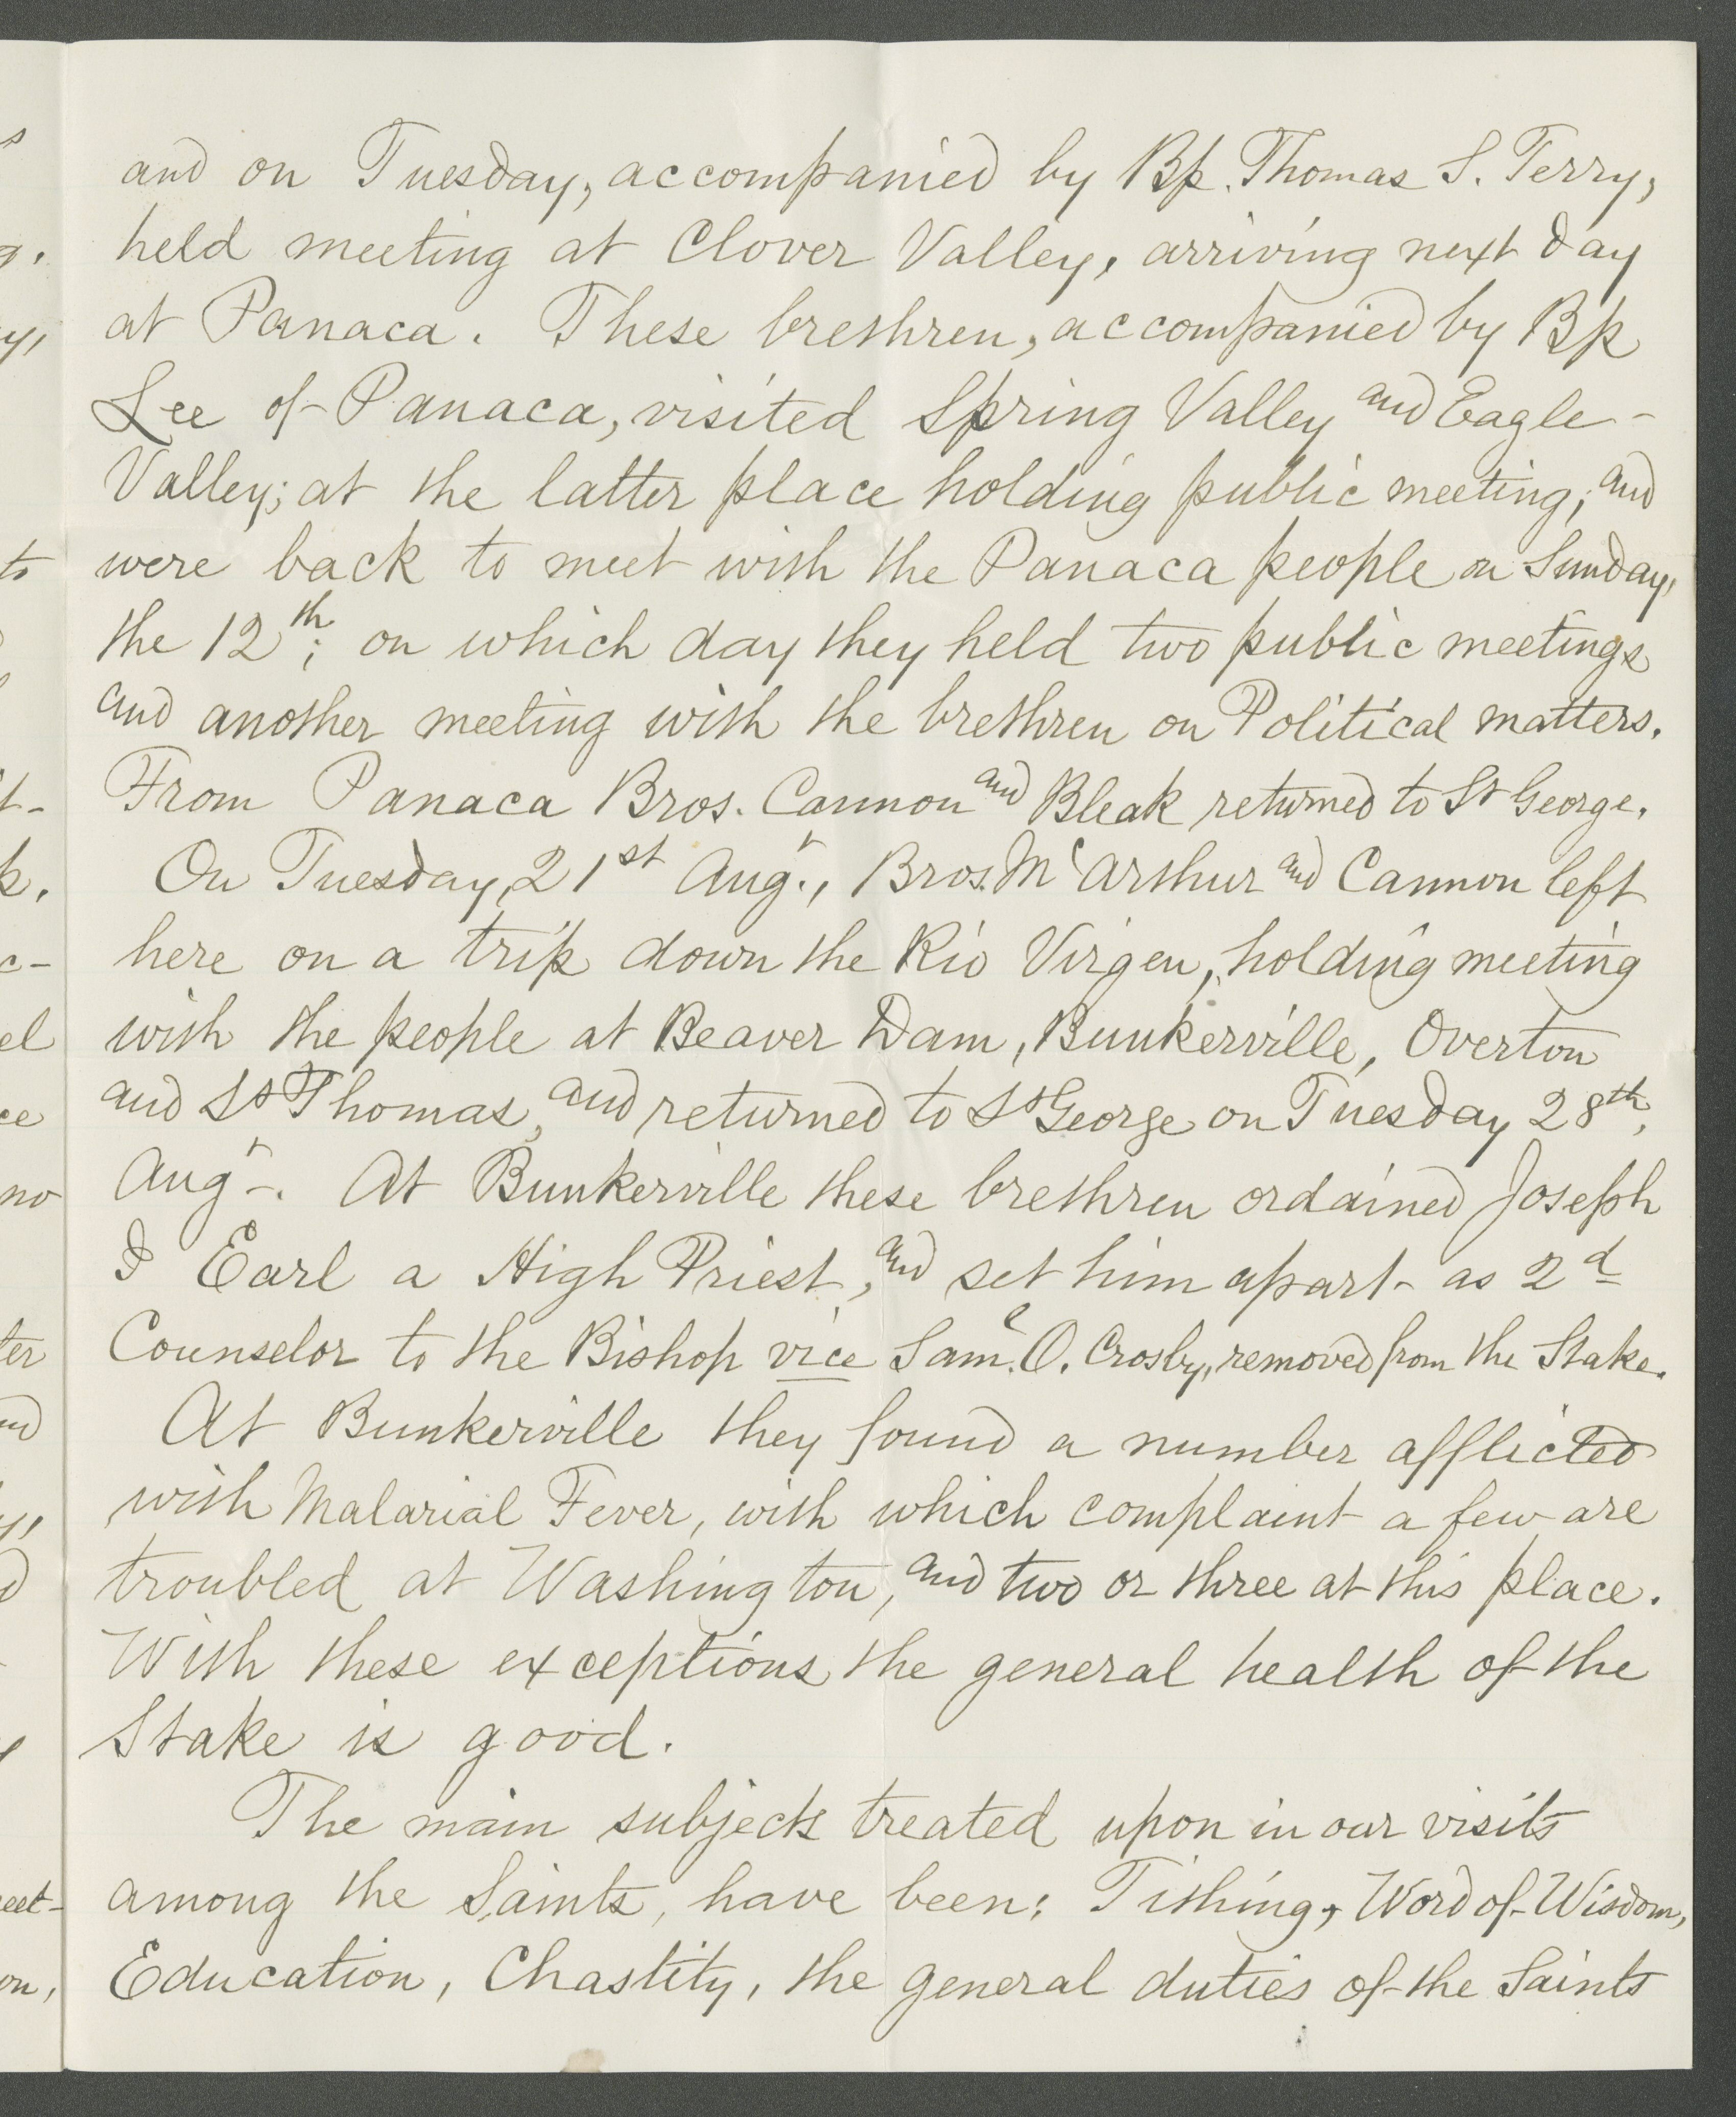 and on Tuesday, accompanied by Bp. Thomas S. Terry,
held meeting at Clover Valley, arriving next day
at Panaca. These brethren, accompanied by Bp
Lee of Panaca, visited Spring Valley and Eagle-
Valley; at the latter place holding public meeting; and
were back to meet with the Panaca people on Sunday,
the 12th; on which day they held two public meetings
and another meeting with the brethren on Political matters.
From Panaca Bros. Cannon and Bleak returned to St George.
On Tuesday, 21st Augt., Bros. McArthur and Cannon left
here on a trip down the Rio Virgen, holding meeting
with the people at Beaver Dam, Bunkerville, Overton
and St Thomas, and returned to St George on Tuesday 28th,
Augt. At Bunkerville these brethren ordained Joseph
I Earl a High Priest, and set him apart as 2d
Counselor to the Bishop vice Saml. O. Crosby, removed from the Stake.
At Bunkerville they found a number afflicted
with Malarial Fever, with which complaint a few are
troubled at Washington, and two or three at this place.
With these exceptions the general health of the
Stake is good.
The main subjects treated upon in our visits
among the Saints, have been: Tithing, Word of Wisdom,
Education, Chastity, the general duties of the Saints